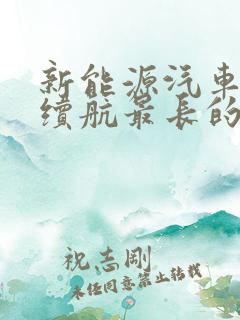 新能源汽車
續航最長的
祝志剛
未经同意禁止转载